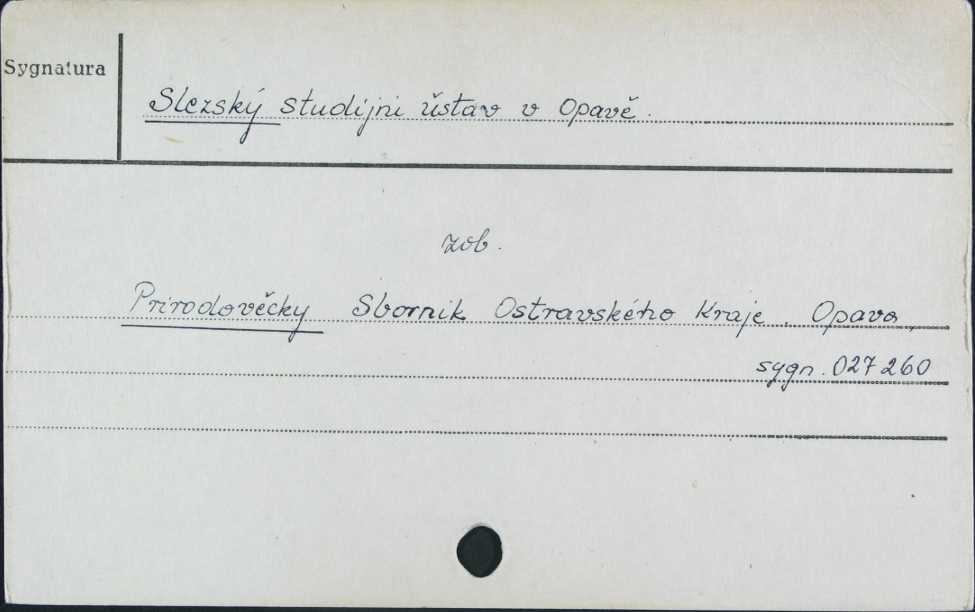 Sygnatura
Slezský studijni ůstav v Opavě.
zob.
Prirodověčky Sbornik Ostravského Kraje. Opava
sygn. 027260